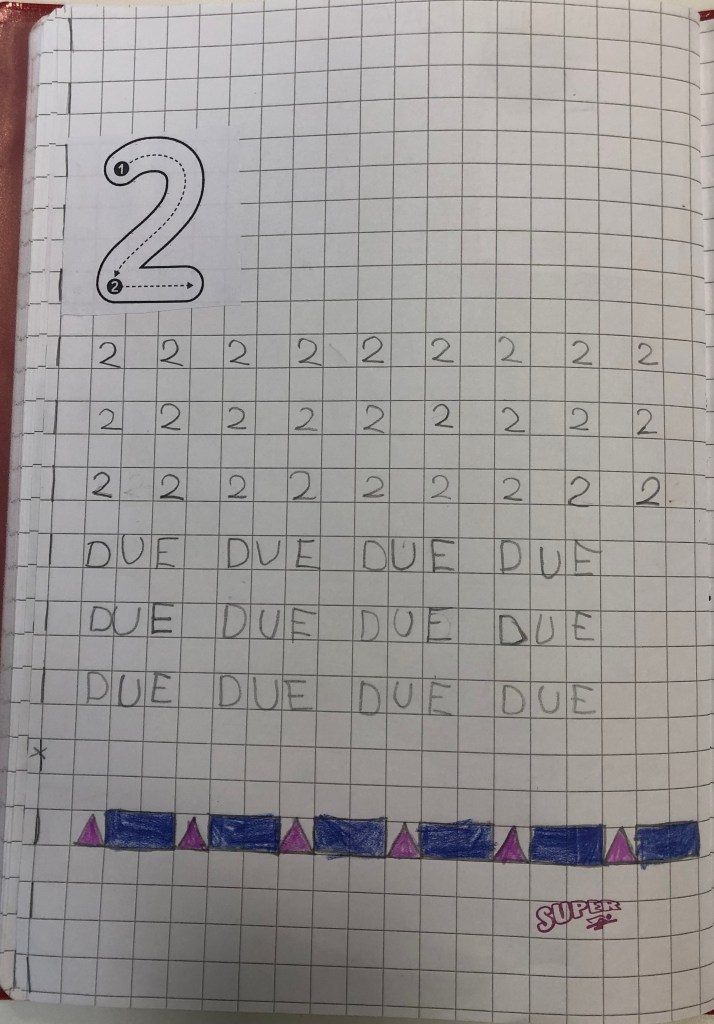 2
1
2
2 2 2 2 2 2 2 2 2
2 2 2 2 2 2 2 2 2
2 2 2 2 2 2 2 2 2.
DUE DUE DUE DUE
DUE DUE DUE DUE
DUE DUE DUE DUE
*
SUPER